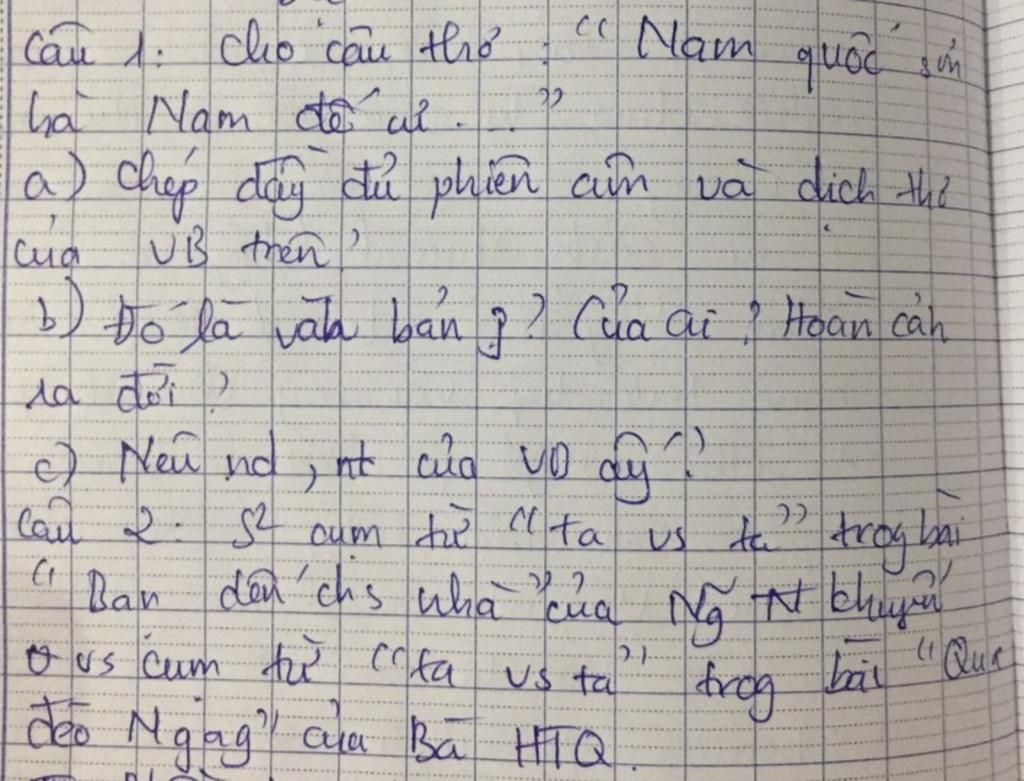 Câu 1: Cho câu thơ: "Nam quốc sơn
hà Nam đế cư...."
a) Chép đầy đủ phiên âm và dịch thơ
của VB trên?
b) Đó là văn bản gì? Của ai? Hoàn cảnh
ra đời?
c) Nêu nd, nt của VB ấy?
Câu 2: S² cụm từ "ta vs ta" trog bài
"Bạn đến chs nhà" của Ng~ khuyến
vs cụm từ "ta vs ta" trog bài "Qua
đèo Ngag" của Bà HTQ.